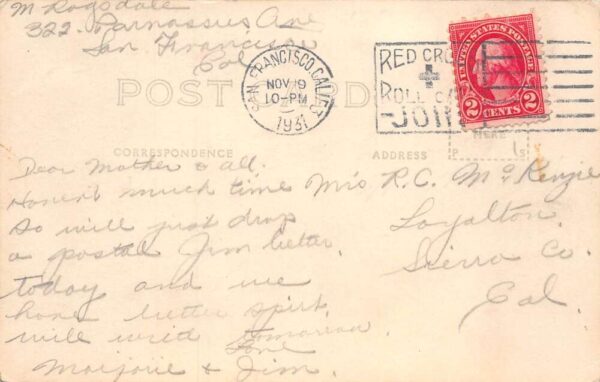 M Ragsdale
322 Parnassus Ave
San Francisco
Cal
SAN FRANCISCO, CALIF.
NOV 19
10-PM
1931
RED CROSS
ROLL CALL
JOIN
UNITED STATES POSTAGE
2 CENTS 2
POST CARD
CORRESPONDENCE
ADDRESS
HERE
Dear Mother & all.
Haven't much time
so will just drop
a postal Jim better
today and we
have better spirt.
will writ tomorrow
Love
Marjorie & Jim.
Mrs R.C. McKenzie
Loyalton,
Sierra Co.
Cal.